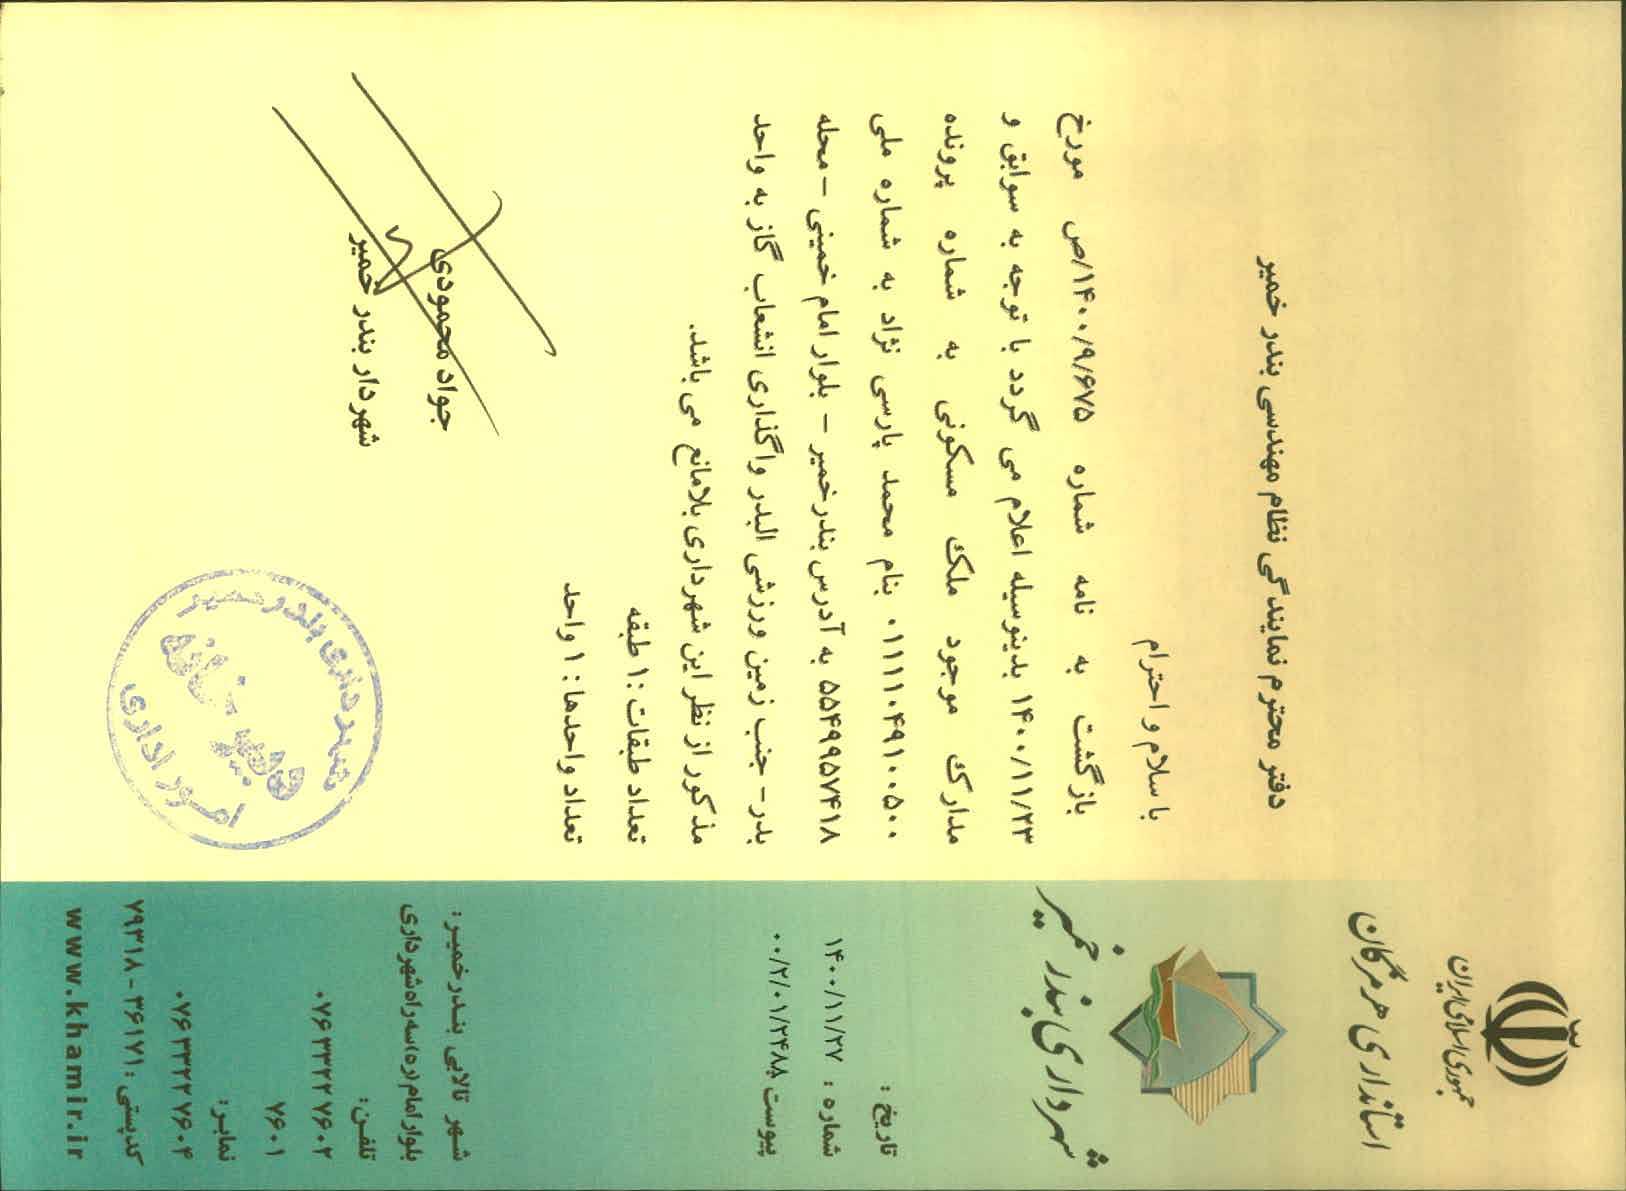 جمهوری اسلامی ایران
استانداری هرمزگان
شهرداری بندر خمیر
تاریخ :
شماره : ۱۴۰۰/۱۱/۲۷
پیوست ۰۰/۲/۰۱/۲۴۸۸
شهر تالابی بندرخمیر:
بلوار امام(ره)سه راه شهرداری
تلفن:
۰۷۶۳۳۲۲۷۶۰۲
۷۶۰۱
نمابر:
۰۷۶۳۳۲۲۷۶۰۴
کدپستی : ۳۶۱۷۱ - ۷۹۳۱۸
www.khamir.ir
دفتر محترم نمایندگی نظام مهندسی بندر خمیر
با سلام و احترام
بازگشت به نامه شماره ۱۴۰۰/۹/۶۷۵/ص مورخ
۱۴۰۰/۱۱/۲۳ بدینوسیله اعلام می گردد با توجه به سوابق و
مدارک موجود ملک مسکونی به شماره پرونده
۰۱۱۱۱۰۴۹۱۰۰۵۰۰ بنام محمد پارسی نژاد به شماره ملی
۵۵۴۹۹۵۷۴۱۸ به آدرس بندرخمیر – بلوار امام خمینی – محله
بدر – جنب زمین ورزشی البدر واگذاری انشعاب گاز به واحد
مذکور از نظر این شهرداری بلامانع می باشد.
تعداد طبقات :۱ طبقه
تعداد واحدها : ۱ واحد
جواد محمودی
شهردار بندر خمیر
شهرداری بندر خمیر
دبیرخانه
امور اداری